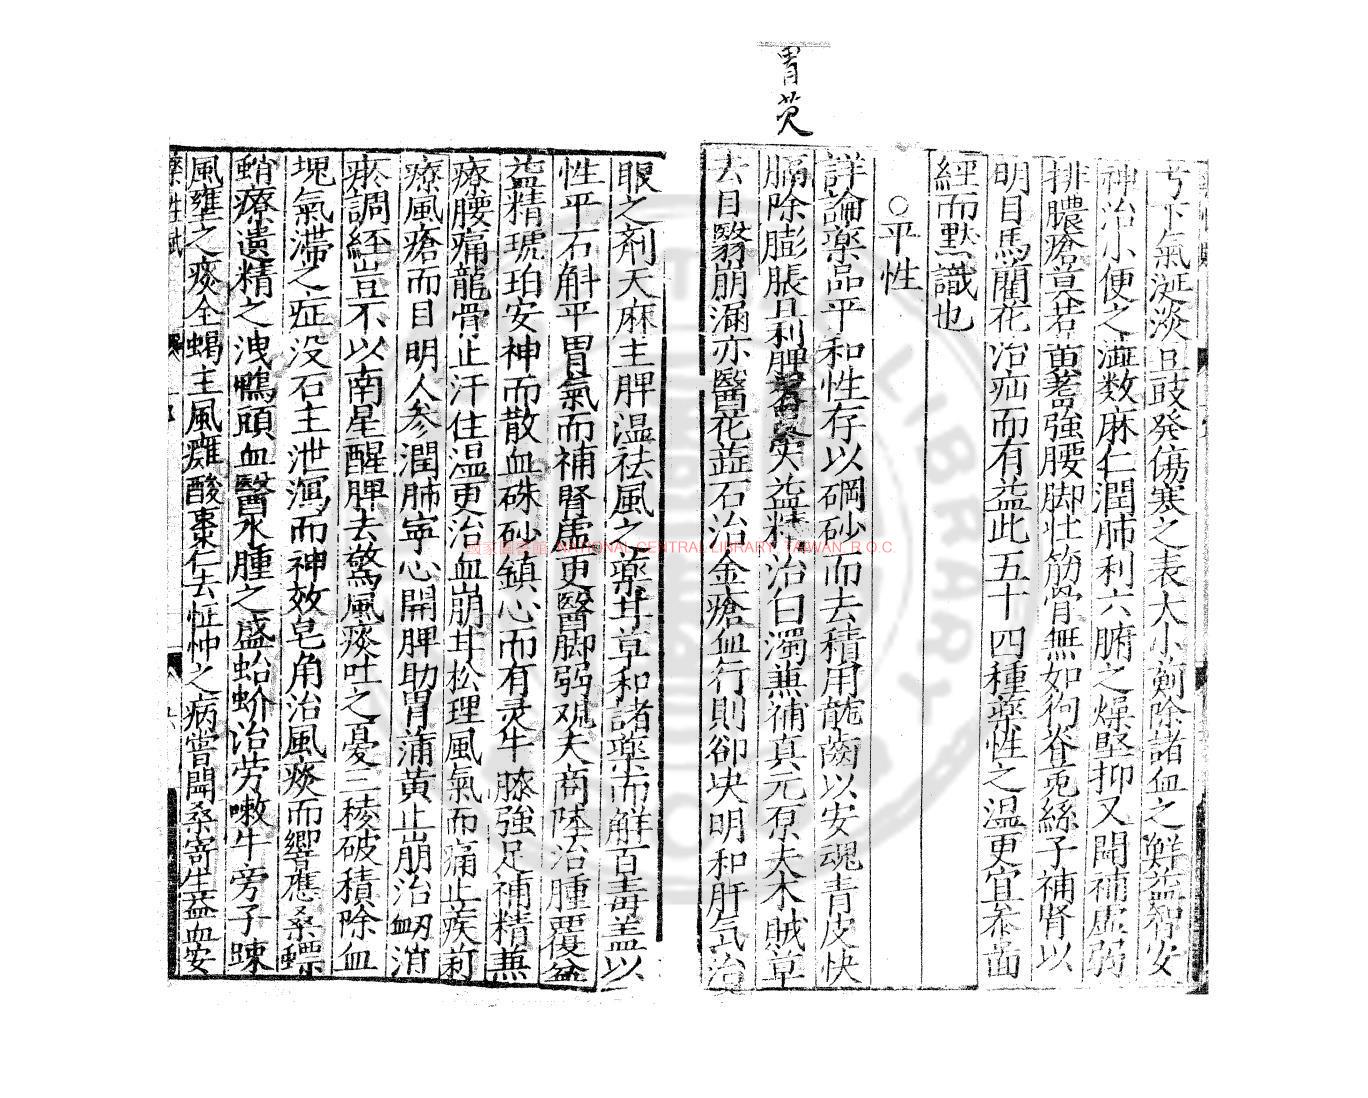 胃芡
兮下氣涎淡豆豉發傷寒之表大小薊除諸血之鮮益智安
神治小便之澁数麻仁潤肺利六腑之燥堅抑又聞補虛弱
排膿瘡莫若黄蓍強腰脚壯筋骨無如狗脊菟絲子補腎以
明目馬藺花治疝而有益此五十四種藥性之温更宜叅畵
經而默識也
○平性
詳論藥品平和性存以碙砂而去積用龍齒以安魂青皮快
膈除膨脹且利脾益精治白濁蕪補真元原夫木賊草
去目翳崩漏亦醫花蕋石治金瘡血行則卻决明和肝气治
眼之剤天麻主脾温祛風之藥甘草和諸藥而解百毒盖以
性平石斛平胃氣而補腎虚更醫脚弱观夫商陸治腫覆盆
益精琥珀安神而散血硃砂鎮心而有灵牛膝強足補精蕪
療腰痛龍骨止汗住温更治血崩甘松理風氣而痛止疾䔧
療風瘡而目明人参潤肺寜心開脾助胃蒲黄止崩治衂消
瘀調經豈不以南星醒脾去驚風痰吐之憂三稜破積除血
塊氣滞之症没石主泄瀉而神效皂角治風痰而響應桑螵
蛸療遺精之洩鴨頭血醫水腫之盛蛤蚧治劳嗽牛旁子踈
風壅之痰全蝎主風癱酸棗仁去怔忡之病嘗聞桑寄生益血安
藥性賦
國家圖書館 NATIONAL CENTRAL LIBRARY, TAIWAN, R.O.C.
LIBRARY